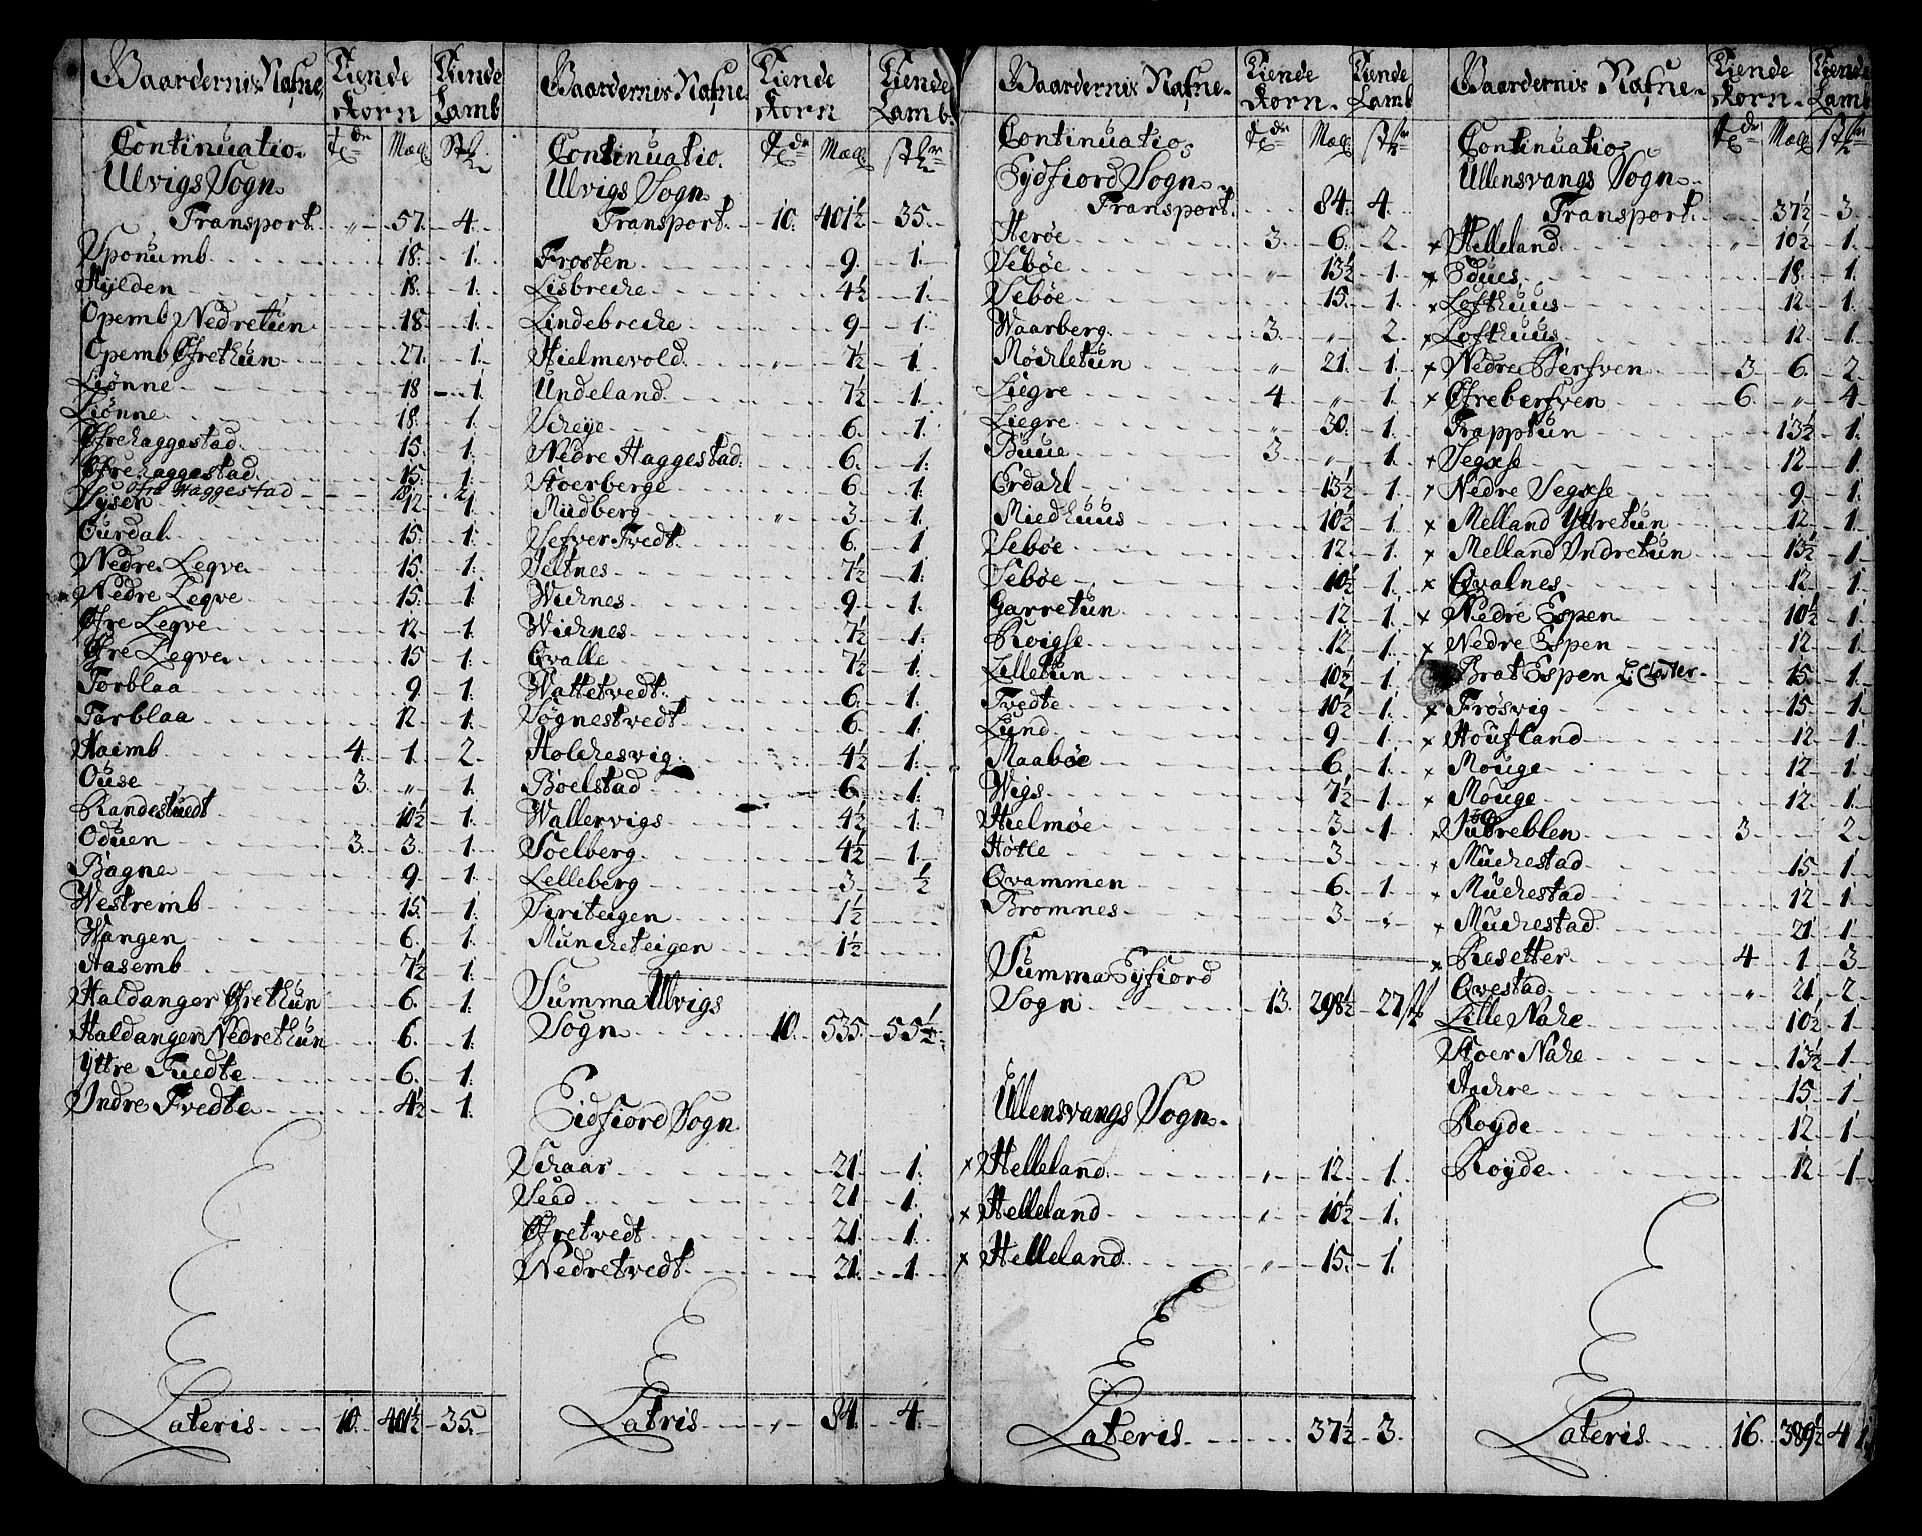 Gaardernis Nafne. Tiende Korn Tiende Lamb
Continuatio. Tdr Mæll St
Ulvigs Sogn.
Transport. " 57. 4.
Sponumb 18. 1.
Hylden 18. 1.
Opemb Nedretun 18. 1.
Opemb Øfrethun 27. 1.
Liønne 18 1.
Liønne 18. 1.
Øfrehaggestad. 15. 1.
Øfrehaggestad. 15. 1.
Øfre Haggestad
Sysen 12 1
Ourdal 15. 1.
Nedre Leqve 15. 1.
Nedre Leqve 15. 1.
Øfre Leqve 12 1.
Øfre Leqve 15 1.
Torblaa 9. 1.
Torblaa 12. 1.
Haimb 4. 1. 2.
Ouse 3. " 1.
Randestuedt 10½ 1.
Oduen 3. 3. 1.
Bagne 9. 1.
Westremb 15. 1.
Wangen 6. 1.
Aasemb 7½ 1.
Haldanger Øfrethun 6. 1.
Haldanger Nedrethun 6. 1.
Yttre Tuedte 6. 1.
Indre Tvedte 4½ 1.
Lateris 10. 401½ 35.
Gaardernis Nafne. Tiende Korn Tiende Lamb.
Continuatio. Tdr Mæll Str
Ulvigs Sogn.
Transport. 10. 401½ 35.
Frosten 9. 1.
Lisbreche 4½ 1.
Lindebreche 9 1.
Hielmevold. " 7½ 1.
Undeland 7½ 1.
Scheye 6. 1.
Nedre Haggestad. 6. 1.
Stoerberge 6. 1.
Mudberg " 3. 1.
Sefver Tvedt. 6. 1
Seltnes 7½ 1.
Wichnes 9. 1.
Wichnes 7½ 1.
Qvalle 7½ 1.
Wattetvedt. 6. 1.
Sognestvedt 6. 1.
Holchesvig 4½ 1.
Boelstad 6. 1.
Wallervigs 4½ 1.
Soelberg 4½ 1.
Lelleberg 3. ½
Siriteigen 1½
Muncheteigen 1½
Summa Ulvigs
Sogn 10. 535. 55½
Eidfiord Sogn
Schaar 21. 1.
Seed 21. 1.
Øfretvedt 21. 1.
Nedretvedt. 21. 1.
Latris " 84. 4.
Gaardernis Nafne. Tiende Korn. Tiende Lamb
Continuatio. Tdr Mæll Str
Eydfiord Sogn.
Transport. 84. 4.
Herøe 3. 6. 2.
Sebøe " 13½ 1.
Sebøe 15. 1.
Waarberg 3. " 2.
Møchletun " 21. 1.
Liegre 4 " 1.
Liegre " 30. 1.
Buue 3. " 1.
Erdahl 13½ 1.
Miedhuus 10½ 1.
Sebøe 12. 1.
Sebøe 10½ 1.
Garretun 12. 1.
Roigse 12. 1.
Lilletun 10½ 1.
Tvedte 10½ 1.
Lund 9. 1.
Maabøe 6. 1.
Wigs 7½ 1.
Hielmøe 3. 1
Hotle 3.
Qvammen 6. 1.
Bromnes 3. "
Summa Eyfiord
Sogn 13. 298½ 27
Ullensvangs Sogn.
x Helleland. " 12. 1.
x Helleland. " 10½ 1.
x Helleland. " 15. 1.
Lateris 37½ 3.
Gaardernis Nafne. Tiende Korn. Tiende Lamb
Continuatio Tdr Mæll Str
Ullensvangs Sogn.
Transport. 37½ 3.
x Helleland. " 10½ 1.
x Eidues 18. 1.
x Lofthuus 12. 1.
x Lofthuus 12. 1.
x Nedre Bersven 3 6. 2.
x Øfrebersven 6. " 4.
Trapptun 13½ 1.
x Segse 12 1.
x Nedre Segse 9. 1.
x Melland Yttretun 12. 1.
x Melland Indretun 13½ 1.
x Qvalnes 12. 1.
x Nedre Espen 10½ 1.
x Nedre Espen 12. 1.
Brat Espen 15. 1.
x Frøsvig 15. 1.
x Houfland 12. 1.
x Mouge 12. 1.
x Mouge 12. 1.
x Jübreblen 3 2.
x Muchestad 15. 1.
x Muchestad 12. 1.
x Muchestad 21. 1.
x Resetter 4. 1. 3.
Qvestad " 21. 2.
Lille Nahe 10½ 1.
Stoer Nahe 13½ 1.
Aachre 15. 1.
Royde 12. 1.
Røyde 12. 1.
Lateris 16. 389½ 41